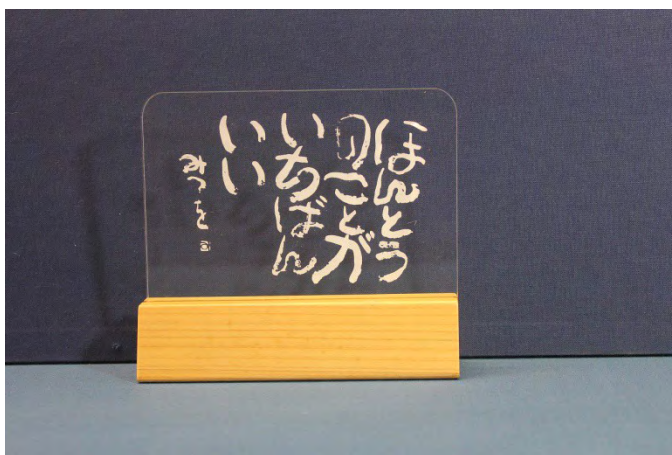 ほんとう
のことが
いちばん
いい
みつを